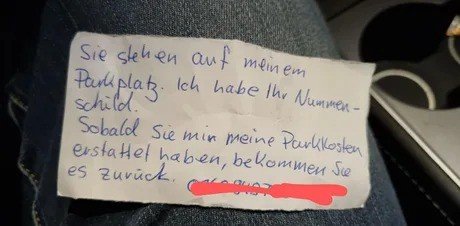 Sie stehen auf meinem
Parkplatz. Ich habe Ihr Nummen-
schild.
Sobald Sie mir meine Parkkosten
erstattet haben, bekommen Sie
es zurück.